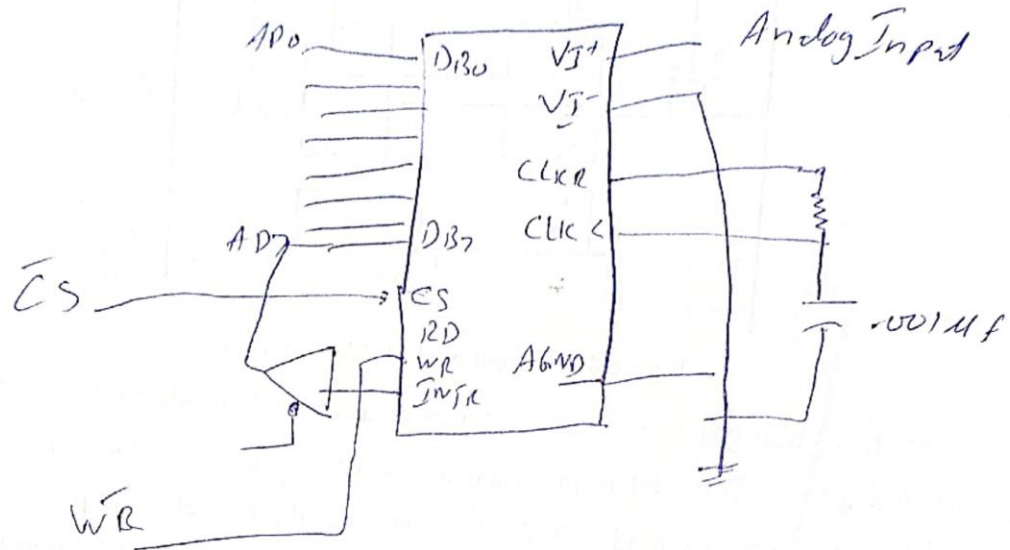 AD0
DB0
VI+
Analog Input
VI-
CLKR
CLK
AD7
DB7
C̅S̅
CS
RD
WR
INTR
AGND
.001 Mf
W̅R̅